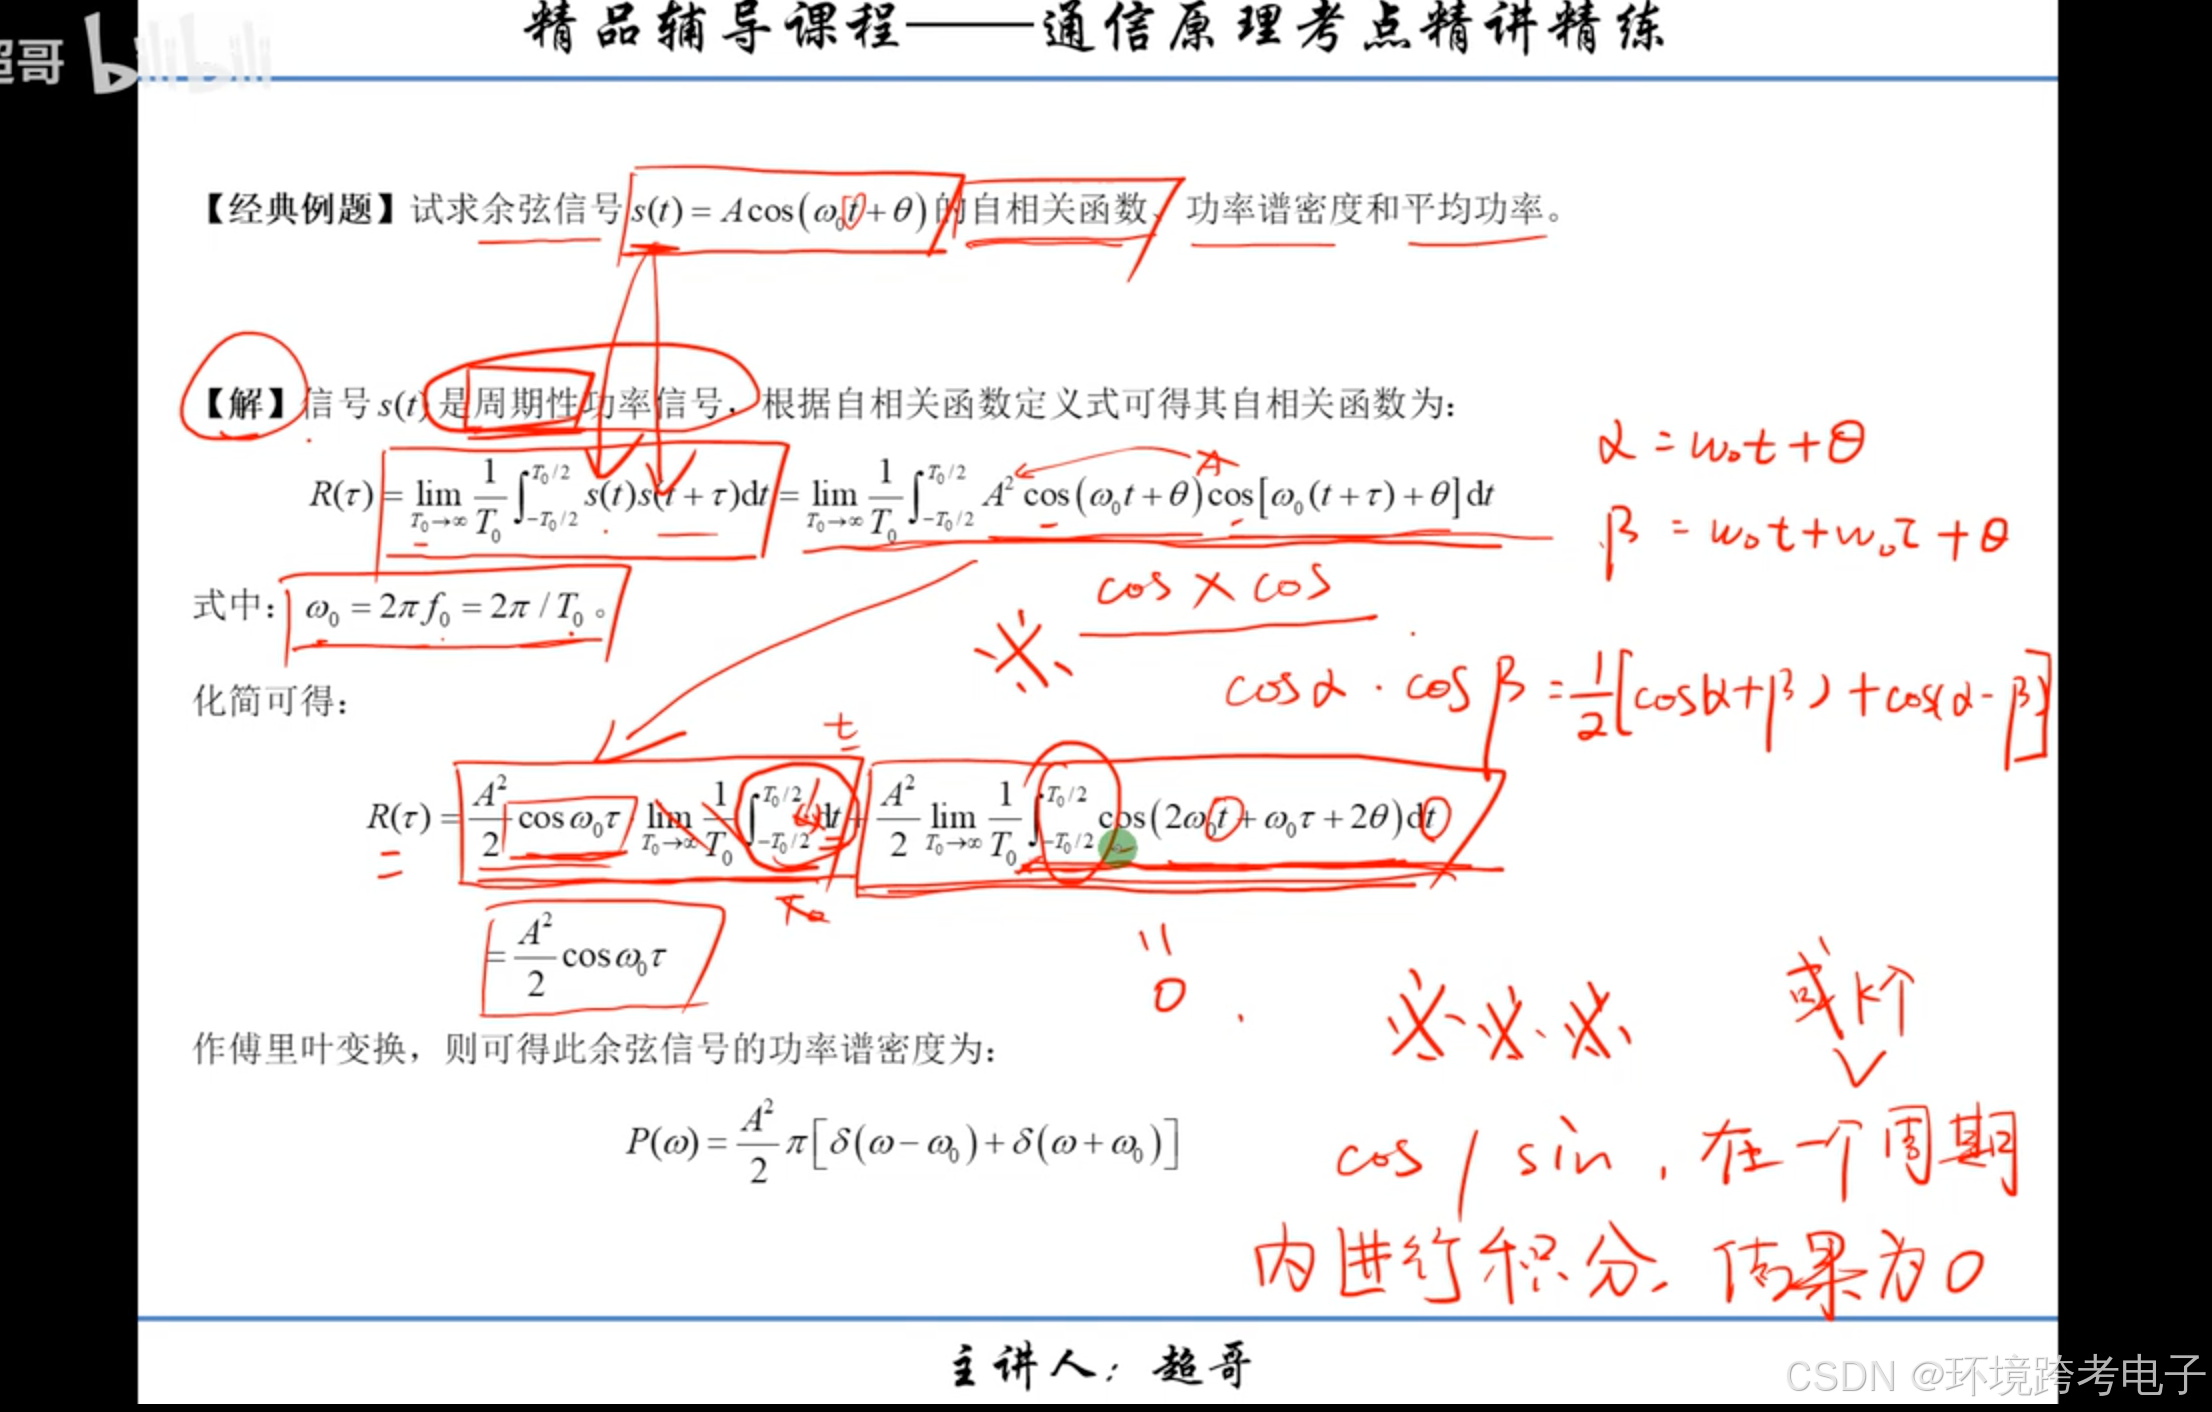 精品辅导课程——通信原理考点精讲精练
超哥 bilibili
【经典例题】试求余弦信号 s(t) = A cos(ω₀t + θ) 的自相关函数、功率谱密度和平均功率。
【解】信号 s(t) 是周期性功率信号，根据自相关函数定义式可得其自相关函数为：
α = ω₀t + θ
R(τ) = lim_{T₀→∞} 1/T₀ ∫_{-T₀/2}^{T₀/2} s(t)s(t + τ)dt = lim_{T₀→∞} 1/T₀ ∫_{-T₀/2}^{T₀/2} A² cos(ω₀t + θ)cos[ω₀(t + τ) + θ]dt
A
β = ω₀t + ω₀τ + θ
式中：ω₀ = 2πf₀ = 2π / T₀。
cos × cos
※
cosα · cosβ = 1/2 [cos(α+β) + cos(α-β)]
化简可得：
t
R(τ) = A²/2 cos ω₀τ lim_{T₀→∞} 1/T₀ ∫_{-T₀/2}^{T₀/2} dt + A²/2 lim_{T₀→∞} 1/T₀ ∫_{-T₀/2}^{T₀/2} cos(2ω₀t + ω₀τ + 2θ)dt
T₀
= A²/2 cos ω₀τ
=
0
※※※
或K个
作傅里叶变换，则可得此余弦信号的功率谱密度为：
P(ω) = A²/2 π[δ(ω − ω₀) + δ(ω + ω₀)]
cos / sin，在一个周期
内进行积分，结果为0
主讲人：超哥
CSDN @环境跨考电子